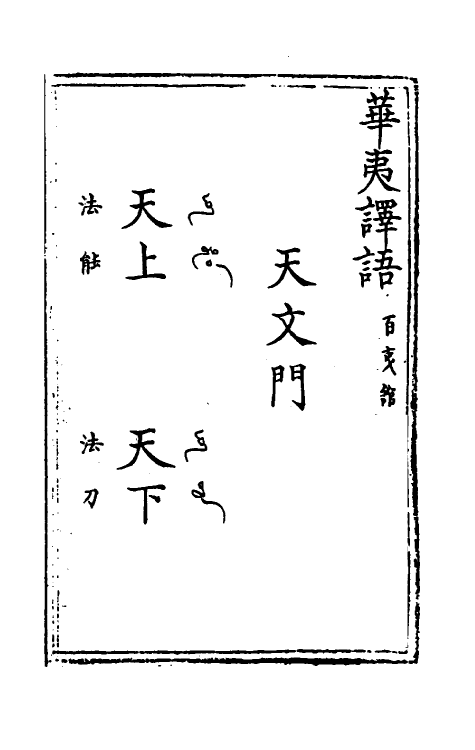 華夷譯語 百夷館
天文門
天上
法能
天下
法刀